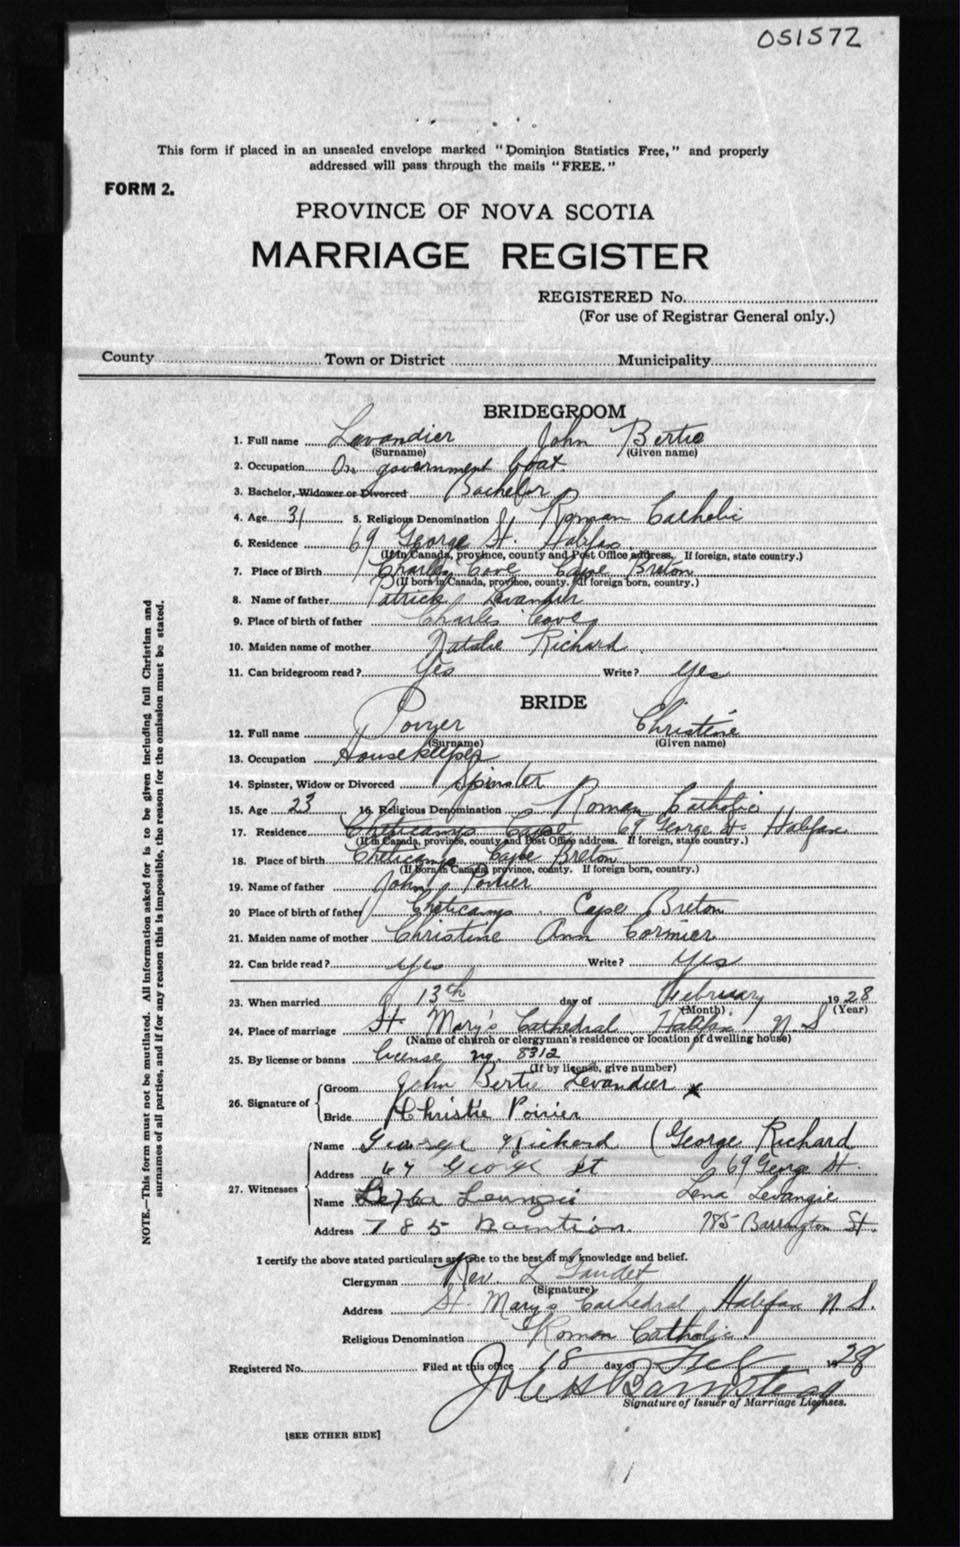 051572
This form if placed in an unsealed envelope marked "Dominion Statistics Free," and properly
addressed will pass through the mails "FREE."
FORM 2.
PROVINCE OF NOVA SCOTIA
MARRIAGE REGISTER
REGISTERED No.
(For use of Registrar General only.)
County Town or District Municipality
BRIDEGROOM
1. Full name Lavandier John Bertie
(Surname) (Given name)
2. Occupation On government boat
3. Bachelor, Widower or Divorced Bachelor
4. Age 31 5. Religious Denomination Roman Catholic
6. Residence 69 George St. Halifax
(If in Canada, province, county and Post Office address. If foreign, state country.)
7. Place of Birth Charles Cove Cape Breton
(If born in Canada, province, county. If foreign born, country.)
8. Name of father Patrick Levandier
9. Place of birth of father Charles Cove
10. Maiden name of mother Natalie Richard
11. Can bridegroom read? Yes Write? Yes
BRIDE
12. Full name Christine
(Surname) (Given name)
13. Occupation Housekeeper
14. Spinster, Widow or Divorced Spinster
15. Age 23 16. Religious Denomination Roman Catholic
17. Residence Cheticamp Cape 69 George St. Halifax
(If in Canada, province, county and Post Office address. If foreign, state country.)
18. Place of birth Cheticamp Cape Breton
(If born in Canada, province, county. If foreign born, country.)
19. Name of father John Poirier
20 Place of birth of father Cheticamp Cape Breton
21. Maiden name of mother Christine Ann Cormier
22. Can bride read? Yes Write? Yes
23. When married 13th day of February 1928
(Month) (Year)
24. Place of marriage St. Mary's Cathedral Halifax N.S
(Name of church or clergyman's residence or location of dwelling house)
25. By license or banns License no. 8312
(If by license, give number)
26. Signature of Groom John Bertie Levandier x
Bride Christie Poirier
27. Witnesses Name George Richard (George Richard
Address 69 George St 69 George St.
Name Lena Levangie
Address 785 785 Barrington St.
I certify the above stated particulars are true to the best of my knowledge and belief.
Clergyman Rev L Gaudet
(Signature)
Address St. Mary's Cathedral, Halifax N.S.
Religious Denomination Roman Catholic
Registered No. Filed at this office 18 day of Feb 1928
Barnstead
Signature of Issuer of Marriage Licenses.
[SEE OTHER SIDE]
NOTE.—This form must not be mutilated. All information asked for is to be given including full Christian and
surnames of all parties, and if for any reason this is impossible, the reason for the omission must be stated.